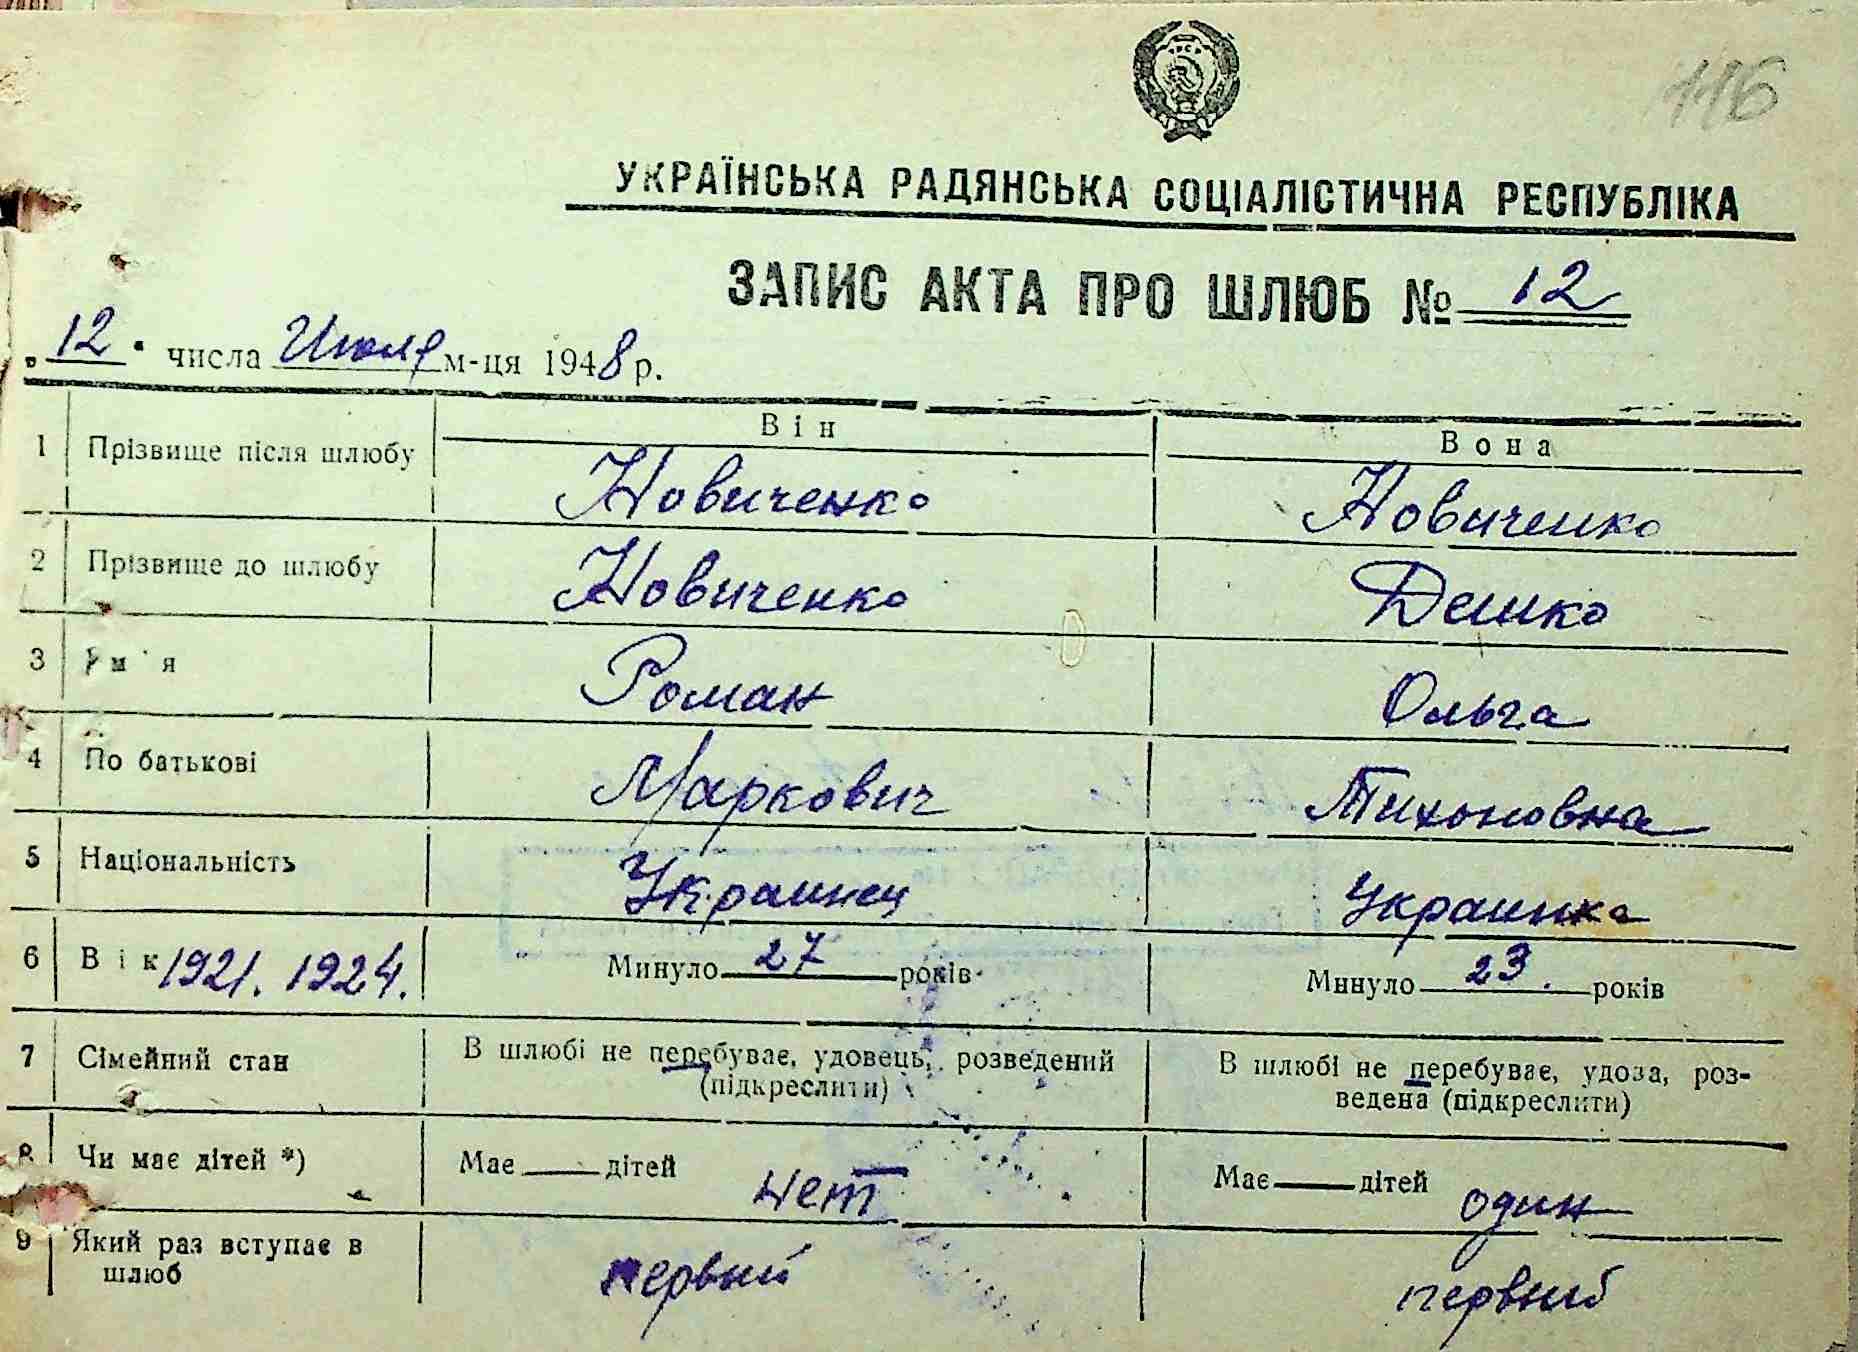 116
УКРАЇНСЬКА РАДЯНСЬКА СОЦІАЛІСТИЧНА РЕСПУБЛІКА
ЗАПИС АКТА ПРО ШЛЮБ № 12
„12“ числа Июля м-ця 1948 р.
Він Вона
1 Прізвище після шлюбу Новиченко Новиченко
2 Прізвище до шлюбу Новиченко Дешко
3 Ім'я Роман Ольга
4 По батькові Маркович Тихоновна
5 Національність Украинец Украинка
6 Вік 1921. 1924. Минуло 27 років Минуло 23. років
7 Сімейний стан В шлюбі не перебуває, удовець, розведений В шлюбі не перебуває, удова, роз-
(підкреслити) ведена (підкреслити)
8 Чи має дітей *) Має — дітей нет Має — дітей один
9 Який раз вступає в первый первый
шлюб